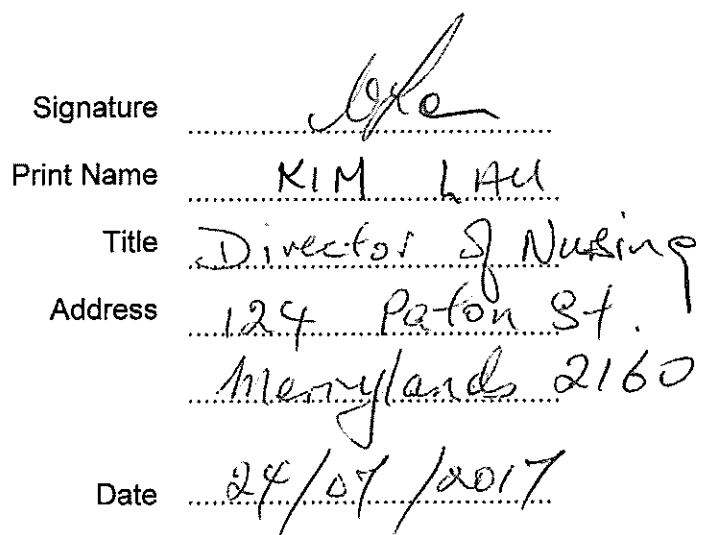 Signature
Print Name KIM LAU
Title Director of Nursing
Address 124 Paton St.
Merrylands 2160
Date 24/07/2017